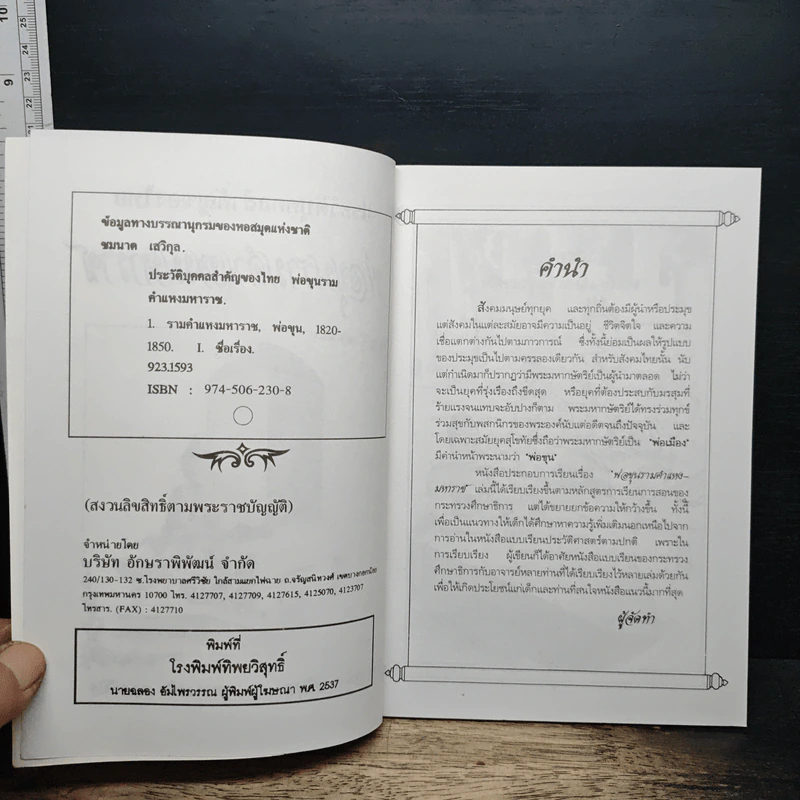 ข้อมูลทางบรรณานุกรมของหอสมุดแห่งชาติ
ชมนาด เสวิกุล.
ประวัติบุคคลสำคัญของไทย พ่อขุนราม
คำแหงมหาราช.
1. รามคำแหงมหาราช, พ่อขุน, 1820-
1850. I. ชื่อเรื่อง.
923.1593
ISBN : 974-506-230-8
(สงวนลิขสิทธิ์ตามพระราชบัญญัติ)
จำหน่ายโดย
บริษัท อักษราพิพัฒน์ จำกัด
240/130-132 ซ.โรงพยาบาลศรีวิชัย ใกล้สามแยกไฟฉาย ถ.จรัญสนิทวงศ์ เขตบางกอกน้อย
กรุงเทพมหานคร 10700 โทร. 4127707, 4127709, 4127615, 4125070, 4123707
โทรสาร. (FAX) : 4127710
พิมพ์ที่
โรงพิมพ์ทิพยวิสุทธิ์
นายฉลอง อัมไพรวรรณ ผู้พิมพ์ผู้โฆษณา พ.ศ. 2537
คำนำ
สังคมมนุษย์ทุกยุค และทุกถิ่นต้องมีผู้นำหรือประมุข
แต่สังคมในแต่ละสมัยอาจมีความเป็นอยู่ ชีวิตจิตใจ และความ
เชื่อแตกต่างกันไปตามภาวการณ์ ซึ่งทั้งนี้ย่อมเป็นผลให้รูปแบบ
ของประมุขเป็นไปตามครรลองเดียวกัน สำหรับสังคมไทยนั้น นับ
แต่กำเนิดมาก็ปรากฏว่ามีพระมหากษัตริย์เป็นผู้นำมาตลอด ไม่ว่า
จะเป็นยุคที่รุ่งเรืองถึงขีดสุด หรือยุคที่ต้องประสบกับมรสุมที่
ร้ายแรงจนแทบจะอับปางก็ตาม พระมหากษัตริย์ได้ทรงร่วมทุกข์
ร่วมสุขกับพสกนิกรของพระองค์นับแต่อดีตจนถึงปัจจุบัน และ
โดยเฉพาะสมัยยุคสุโขทัยซึ่งถือว่าพระมหากษัตริย์เป็น "พ่อเมือง"
มีคำนำหน้าพระนามว่า "พ่อขุน"
หนังสือประกอบการเรียนเรื่อง "พ่อขุนรามคำแหง-
มหาราช" เล่มนี้ได้เรียบเรียงขึ้นตามหลักสูตรการเรียนการสอนของ
กระทรวงศึกษาธิการ แต่ได้ขยายยกข้อความให้กว้างขึ้น ทั้งนี้
เพื่อเป็นแนวทางให้เด็กได้ศึกษาหาความรู้เพิ่มเติมนอกเหนือไปจาก
การอ่านในหนังสือแบบเรียนประวัติศาสตร์ตามปกติ เพราะใน
การเรียบเรียง ผู้เขียนก็ได้อาศัยหนังสือแบบเรียนของกระทรวง
ศึกษาธิการกับอาจารย์หลายท่านที่ได้เรียบเรียงไว้หลายเล่มด้วยกัน
เพื่อให้เกิดประโยชน์แก่เด็กและท่านที่สนใจหนังสือแนวนี้มากที่สุด
ผู้จัดทำ
10
9
25
24
23
22
21